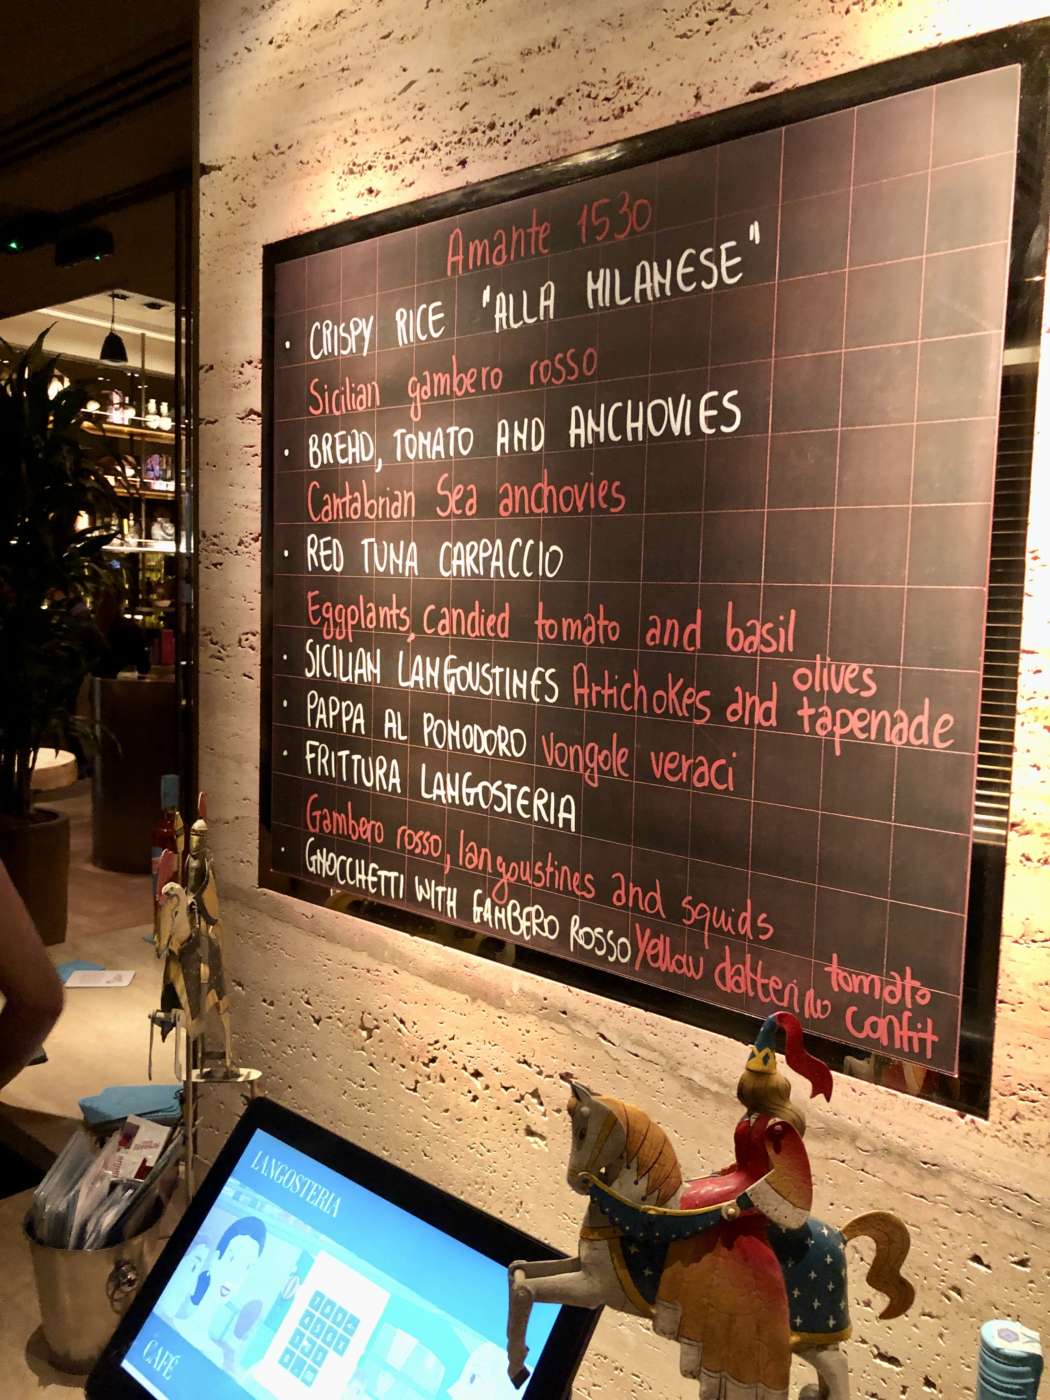 Amante 1530
• CRISPY RICE "ALLA MILANESE"
Sicilian gambero rosso
• BREAD, TOMATO AND ANCHOVIES
Cantabrian Sea anchovies
• RED TUNA CARPACCIO
Eggplants, candied tomato and basil
• SICILIAN LANGOUSTINES Artichokes and olives tapenade
• PAPPA AL POMODORO Vongole veraci
• FRITTURA LANGOSTERIA
Gambero rosso, langoustines and squids
• GNOCCHETTI WITH GAMBERO ROSSO Yellow datterino tomato confit
LANGOSTERIA
CAFÉ